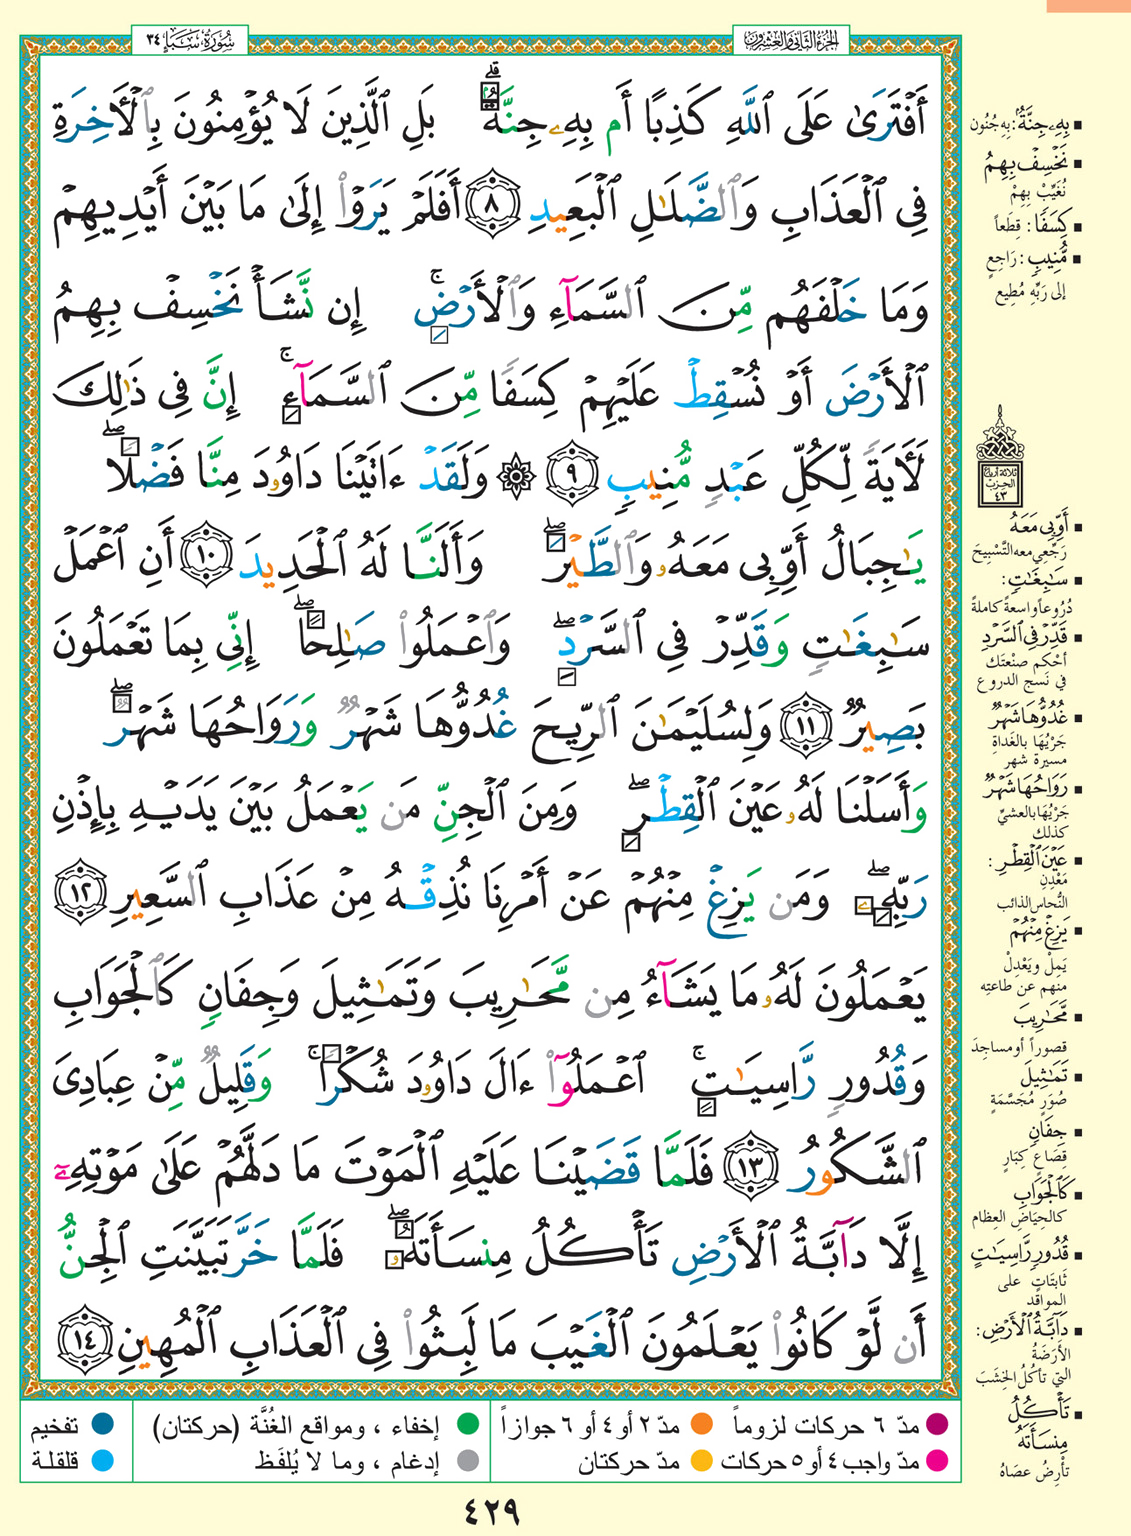 الجزء الثاني والعشرون
سُورَةُ سَبَإٍ ٣٤
أَفْتَرَىٰ عَلَى ٱللَّهِ كَذِبًا أَم بِهِۦ جِنَّةُۢ ۗ بَلِ ٱلَّذِينَ لَا يُؤْمِنُونَ بِٱلْأَخِرَةِ
فِى ٱلْعَذَابِ وَٱلضَّلَـٰلِ ٱلْبَعِيدِ ٨ أَفَلَمْ يَرَوْا۟ إِلَىٰ مَا بَيْنَ أَيْدِيهِمْ
وَمَا خَلْفَهُم مِّنَ ٱلسَّمَآءِ وَٱلْأَرْضِ ۚ إِن نَّشَأْ نَخْسِفْ بِهِمُ
ٱلْأَرْضَ أَوْ نُسْقِطْ عَلَيْهِمْ كِسَفًا مِّنَ ٱلسَّمَآءِ ۚ إِنَّ فِى ذَٰلِكَ
لَـَٔايَةً لِّكُلِّ عَبْدٍ مُّنِيبٍ ٩ ۞ وَلَقَدْ ءَاتَيْنَا دَاوُۥدَ مِنَّا فَضْلًا ۖ
يَـٰجِبَالُ أَوِّبِى مَعَهُۥ وَٱلطَّيْرَ ۖ وَأَلَنَّا لَهُ ٱلْحَدِيدَ ١٠ أَنِ ٱعْمَلْ
سَـٰبِغَـٰتٍ وَقَدِّرْ فِى ٱلسَّرْدِ ۖ وَٱعْمَلُوا۟ صَـٰلِحًا ۖ إِنِّى بِمَا تَعْمَلُونَ
بَصِيرٌ ١١ وَلِسُلَيْمَـٰنَ ٱلرِّيحَ غُدُوُّهَا شَهْرٌ وَرَوَاحُهَا شَهْرٌ ۖ
وَأَسَلْنَا لَهُۥ عَيْنَ ٱلْقِطْرِ ۖ وَمِنَ ٱلْجِنِّ مَن يَعْمَلُ بَيْنَ يَدَيْهِ بِإِذْنِ
رَبِّهِۦ ۖ وَمَن يَزِغْ مِنْهُمْ عَنْ أَمْرِنَا نُذِقْهُ مِنْ عَذَابِ ٱلسَّعِيرِ ١٢
يَعْمَلُونَ لَهُۥ مَا يَشَآءُ مِن مَّحَـٰرِيبَ وَتَمَـٰثِيلَ وَجِفَانٍ كَٱلْجَوَابِ
وَقُدُورٍ رَّاسِيَـٰتٍ ۚ ٱعْمَلُوٓا۟ ءَالَ دَاوُۥدَ شُكْرًا ۚ وَقَلِيلٌ مِّنْ عِبَادِىَ
ٱلشَّكُورُ ١٣ فَلَمَّا قَضَيْنَا عَلَيْهِ ٱلْمَوْتَ مَا دَلَّهُمْ عَلَىٰ مَوْتِهِۦٓ
إِلَّا دَآبَّةُ ٱلْأَرْضِ تَأْكُلُ مِنسَأَتَهُۥ ۖ فَلَمَّا خَرَّ تَبَيَّنَتِ ٱلْجِنُّ
أَن لَّوْ كَانُوا۟ يَعْلَمُونَ ٱلْغَيْبَ مَا لَبِثُوا۟ فِى ٱلْعَذَابِ ٱلْمُهِينِ ١٤
بِهِۦ جِنَّةٌ: بِهِ جُنُون
نَخْسِفْ بِهِمُ
نُغَيِّبْ بِهِمْ
كِسَفًا: قِطَعاً
مُّنِيبٍ: رَاجِعٍ
إلى رَبِّهِ مُطِيع
ثلاثة أرباع
الحزب
٤٣
أَوِّبِى مَعَهُ
رَجِّعِي معه التَّسْبِيحَ
سَـٰبِغَـٰتٍ:
دُرُوعاً واسعةً كاملةً
قَدِّرْ فِى ٱلسَّرْدِ
أحْكِم صنْعتَك
في نَسج الدروع
غُدُوُّهَا شَهْرٌ
جَرْيُهَا بالغَداةِ
مسيرة شهر
رَوَاحُهَا شَهْرٌ
جَرْيُهَا بالعشيِّ
كذلك
عَيْنَ ٱلْقِطْرِ:
مَعْدِنِ
النُّحاس الذائب
يَزِغْ مِنْهُمْ
يَمِلْ ويَعْدِلْ
منهم عن طاعتِه
مَّحَـٰرِيبَ
قصوراً أو مساجِدَ
تَمَـٰثِيلَ
صُوَرٍ مُجَسَّمَةٍ
جِفَانٍ
قِصَاعٍ كِبَارٍ
كَٱلْجَوَابِ
كالحِيَاضِ العِظام
قُدُورٍ رَّاسِيَـٰتٍ
ثَابتَاتٍ على
المواقد
دَآبَّةُ ٱلْأَرْضِ:
الأَرَضَةُ
التي تأكلُ الخَشَبَ
تَأْكُلُ
مِنسَأَتَهُ
تأرِضُ عصَاهُ
مدّ ٦ حركات لزوماً
مدّ ٢ أو ٤ أو ٦ جوازاً
إخفاء ، ومواقع الغُنَّة (حركتان)
تفخيم
مدّ واجب ٤ أو ٥ حركات
مدّ حركتان
إدغام ، وما لا يُلفَظ
قلقلة
٤٢٩